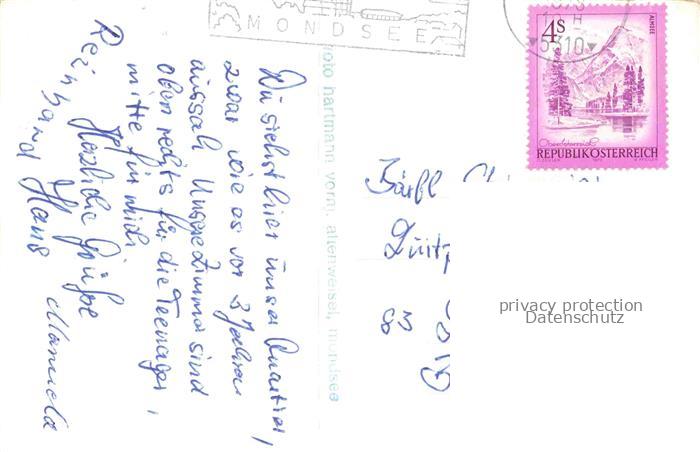 MONDSEE
5310
4S
ALMSEE
Oberösterreich
REPUBLIK ÖSTERREICH
Du siehst hier unser Quartier,
zwar wie es vor 3 Jahren
aussah. Unsere Zimmer sind
oben rechts für die Teenager,
mitte für mich.
Herzliche Grüße
Reinhard Hans Manuela
foto hartmann vorm. altenweisel, mondsee
privacy protection
Datenschutz